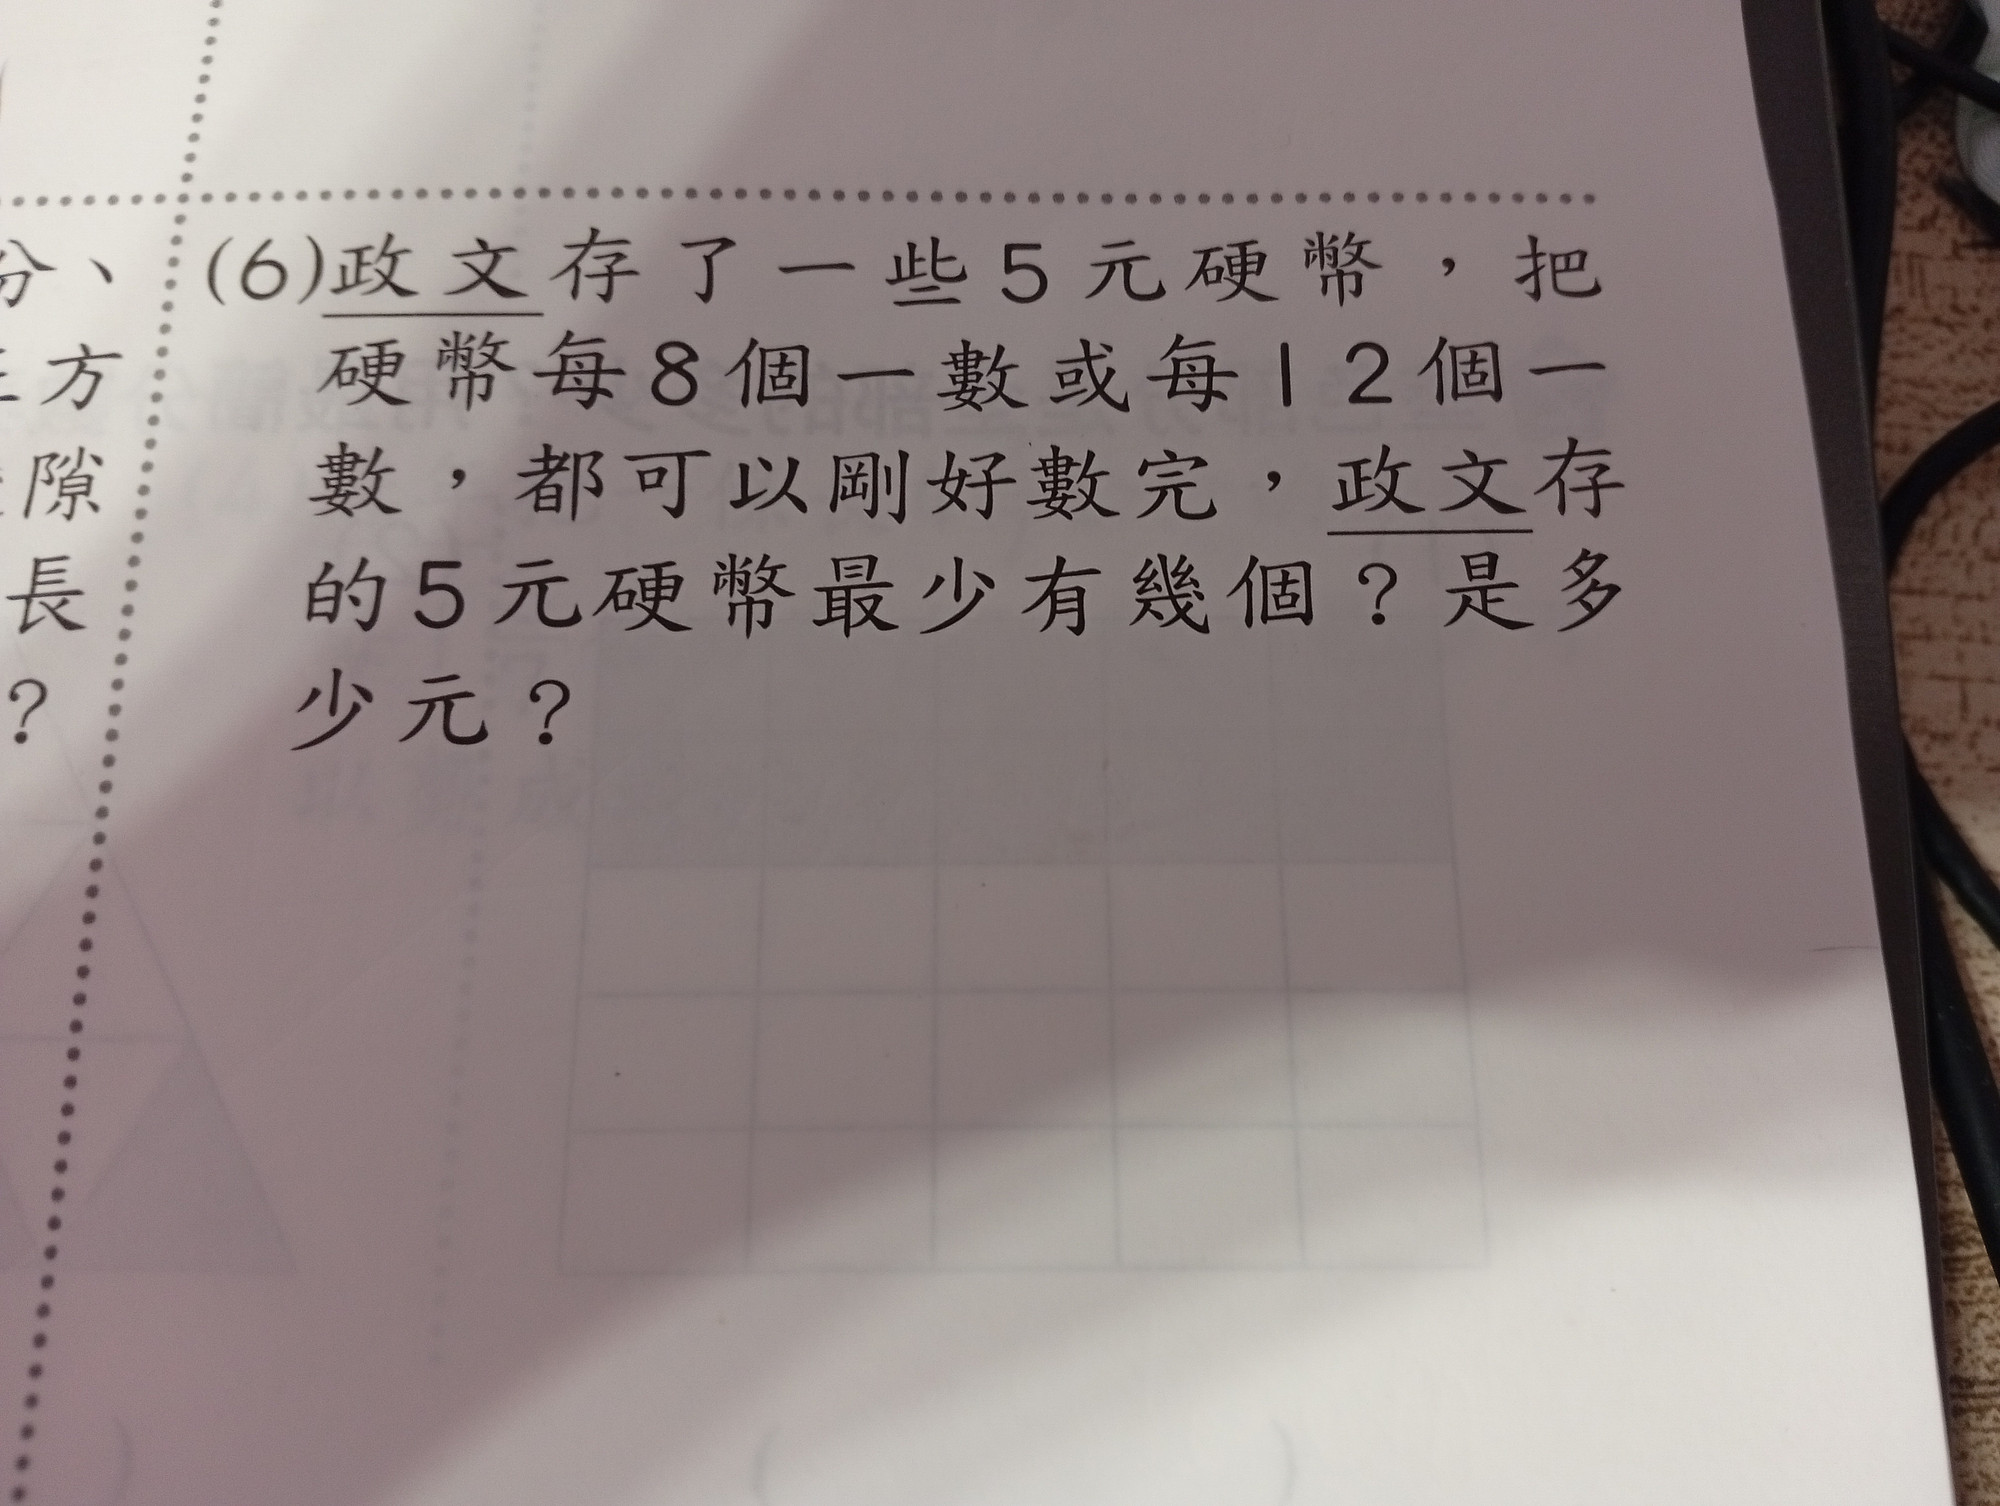 (6)政文存了一些5元硬幣，把
硬幣每8個一數或每12個一
數，都可以剛好數完，政文存
的5元硬幣最少有幾個？是多
少元？
分、
方
隙
長
？